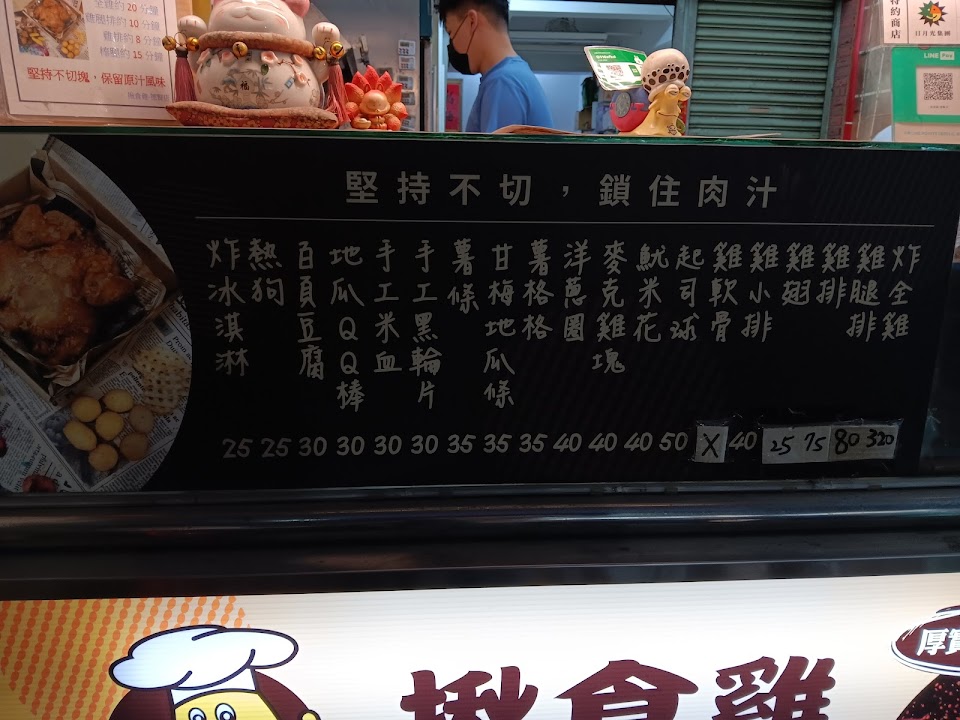 全雞約 20 分鐘
雞腿排約 10 分鐘
雞排約 8 分鐘
約 15 分鐘
堅持不切塊，保留原汁風味
福
特約商店
日月光集團
LINE Pay
堅持不切，鎖住肉汁
炸全雞
雞腿排
雞排
雞翅
雞小排
雞軟骨
起司球
魷米花
麥克雞塊
洋蔥圈
薯格格
甘梅地瓜條
薯條
手工黑輪片
手工米血
地瓜QQ棒
百頁豆腐
熱狗
炸冰淇淋
25 25 30 30 30 30 35 35 35 40 40 40 50 X 40 25 75 80 320
揪食雞
厚實